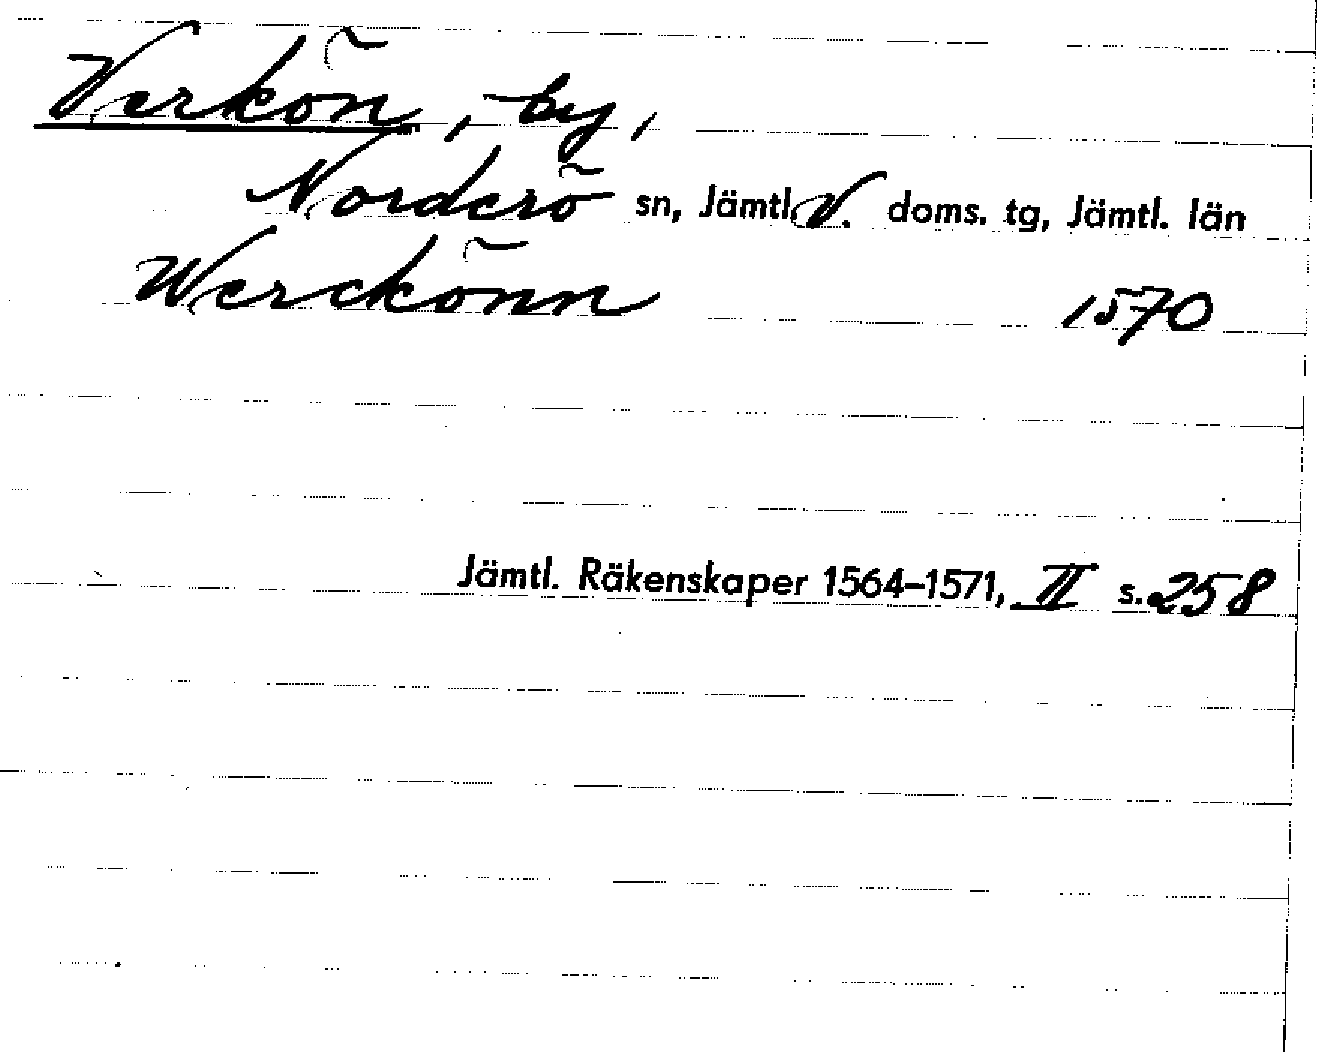 Verkön, by,
Norderö sn, Jämtl. V. doms. tg, Jämtl. län
Werckönn 1570
Jämtl. Räkenskaper 1564–1571, II s. 258